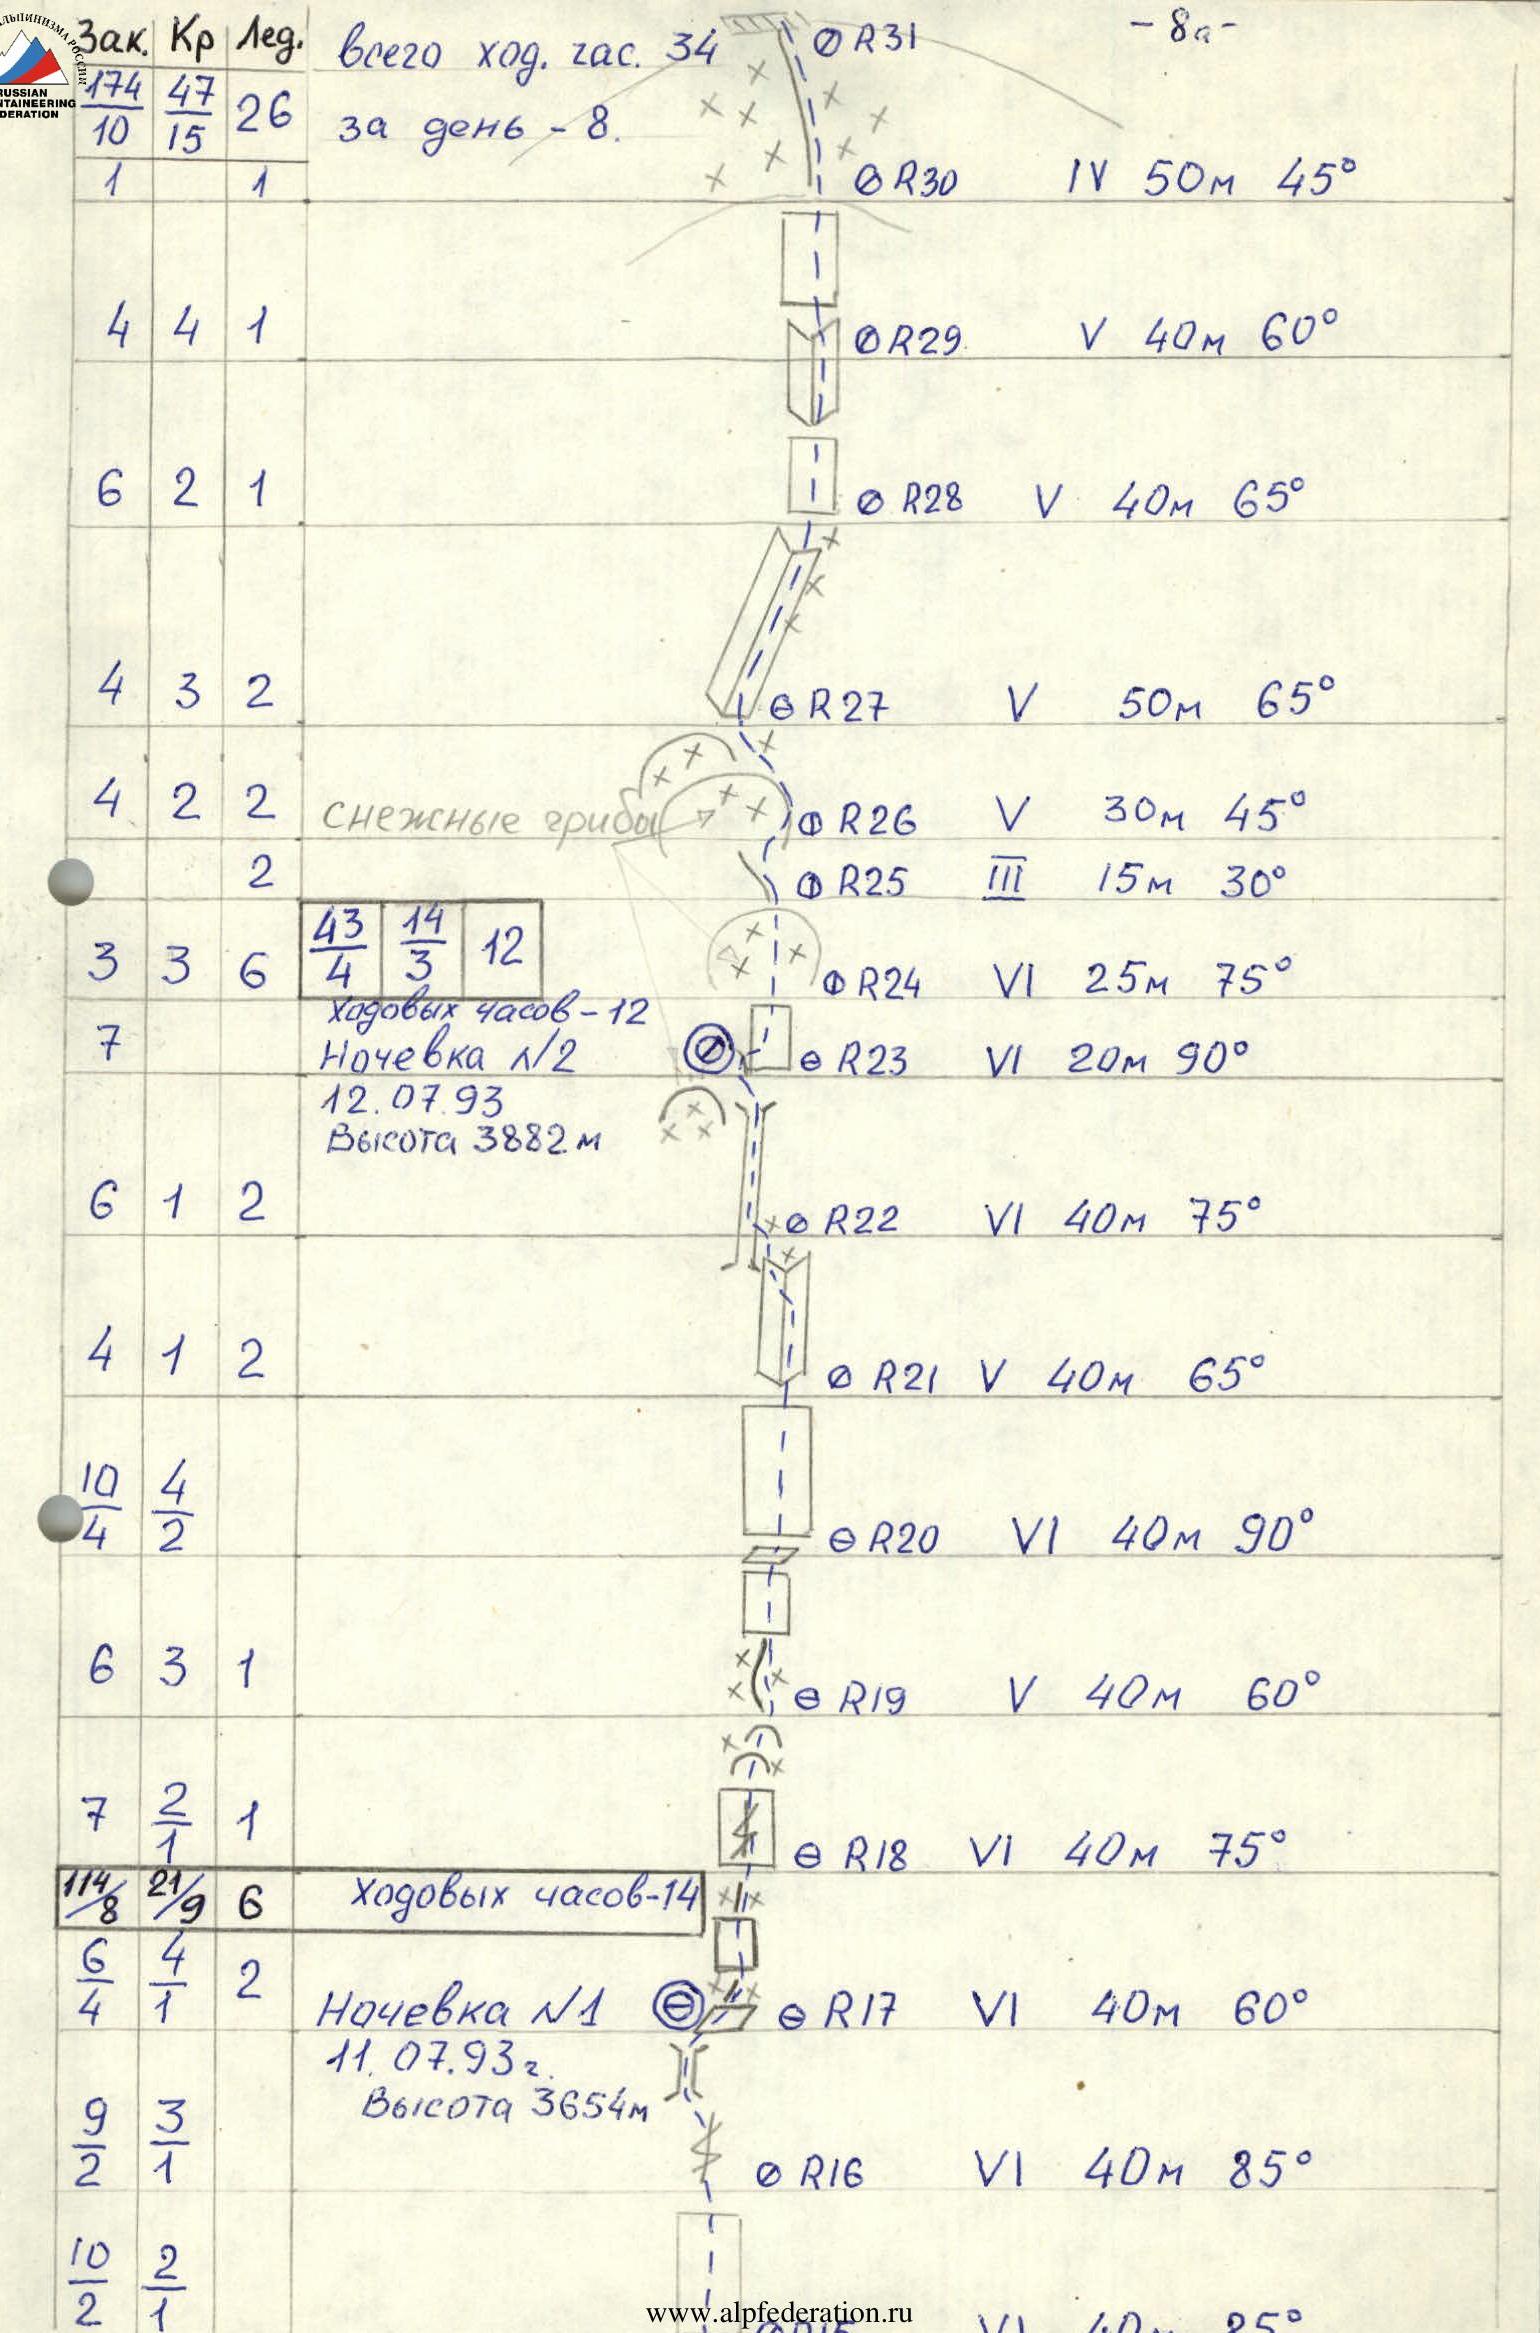 АЛЬПИНИЗМА РОССИИ
RUSSIAN
MOUNTAINEERING
FEDERATION
- 8а -
Зак. Кр Лед. всего ход. час. 34 R31
174/10 47/15 26 за день - 8.
1 1 R30 IV 50м 45°
4 4 1 R29 V 40м 60°
6 2 1 R28 V 40м 65°
4 3 2 R27 V 50м 65°
4 2 2 снежные грибы R26 V 30м 45°
2 R25 III 15м 30°
43/4 14/3 12
3 3 6 R24 VI 25м 75°
Ходовых часов - 12
7 Ночевка №2 R23 VI 20м 90°
12.07.93
Высота 3882м
6 1 2 R22 VI 40м 75°
4 1 2 R21 V 40м 65°
10/4 4/2 R20 VI 40м 90°
6 3 1 R19 V 40м 60°
7 2/1 1 R18 VI 40м 75°
114/8 21/9 6 Ходовых часов-14
6/4 4/1 2 Ночевка №1 R17 VI 40м 60°
11.07.93г.
Высота 3654м
9/2 3/1 R16 VI 40м 85°
10/2 2/1
www.alpfederation.ru